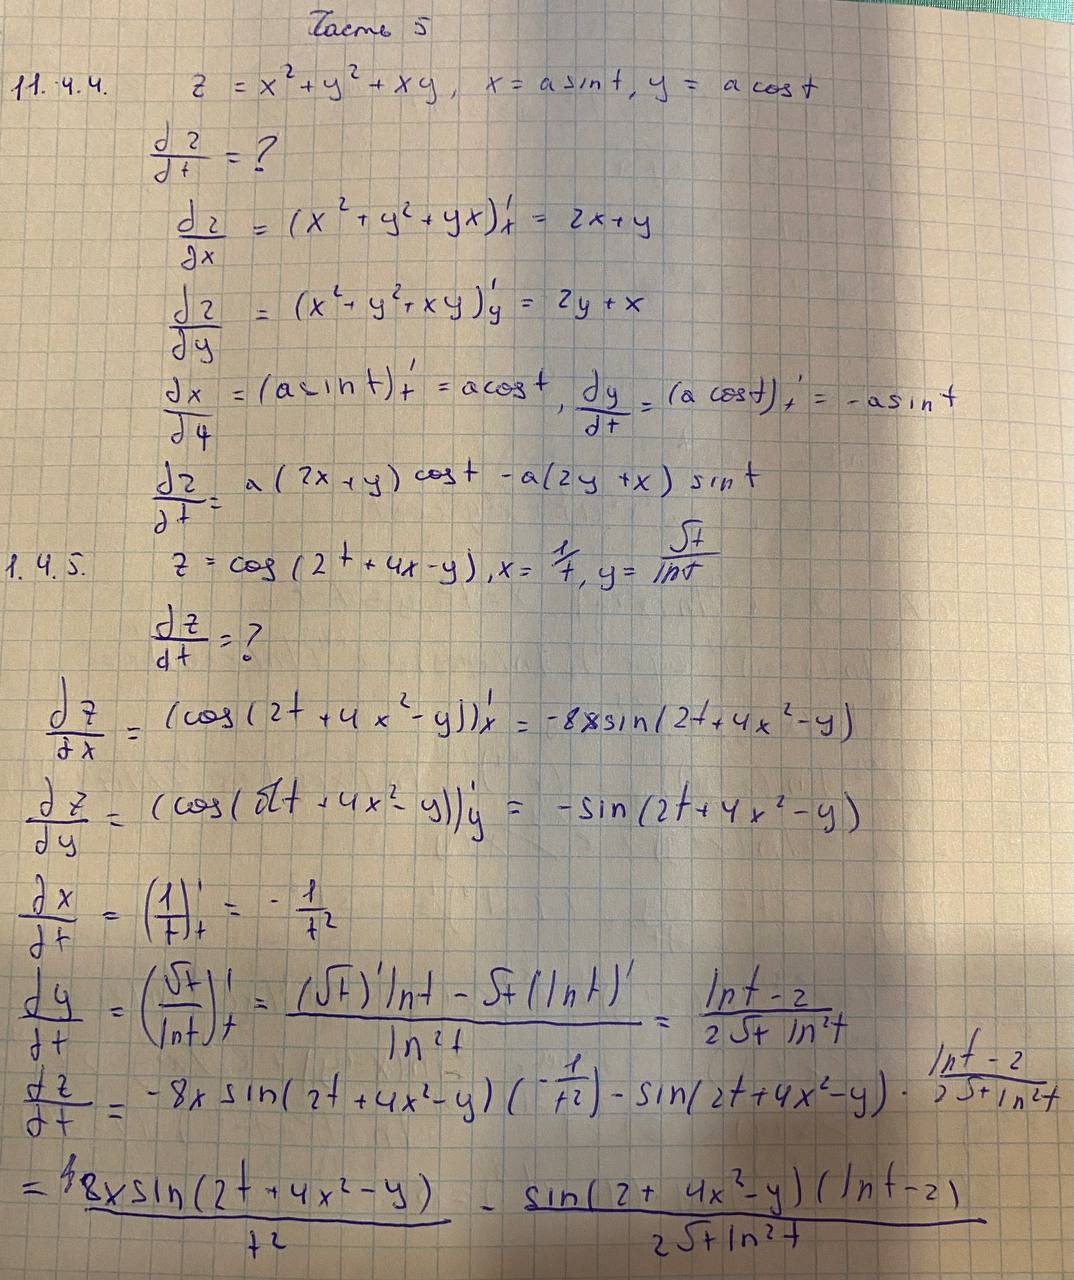 Часть 5
11.4.4. z = x² + y² + xy, x = a sin t, y = a cos t
dz/dt = ?
dz/dx = (x² + y² + yx)'ₓ = 2x + y
dz/dy = (x² + y² + xy)'y = 2y + x
dx/dt = (a sin t)'t = a cos t, dy/dt = (a cos t)'t = -a sin t
dz/dt = a(2x + y) cos t - a(2y + x) sin t
1.4.5. z = cos(2t + 4x - y), x = 1/t, y = √t/ln t
dz/dt = ?
dz/dx = (cos(2t + 4x² - y))'ₓ = -8x sin(2t + 4x² - y)
dz/dy = (cos(2t + 4x² - y))'y = -sin(2t + 4x² - y)
dx/dt = (1/t)'t = -1/t²
dy/dt = (√t/ln t)'t = ((√t)' ln t - √t (ln t)')/ln² t = (ln t - 2)/(2√t ln² t)
dz/dt = -8x sin(2t + 4x² - y)(-1/t²) - sin(2t + 4x² - y) · (ln t - 2)/(2√t ln² t)
= 8x sin(2t + 4x² - y)/t² - sin(2 + 4x² - y)(ln t - 2)/(2√t ln² t)